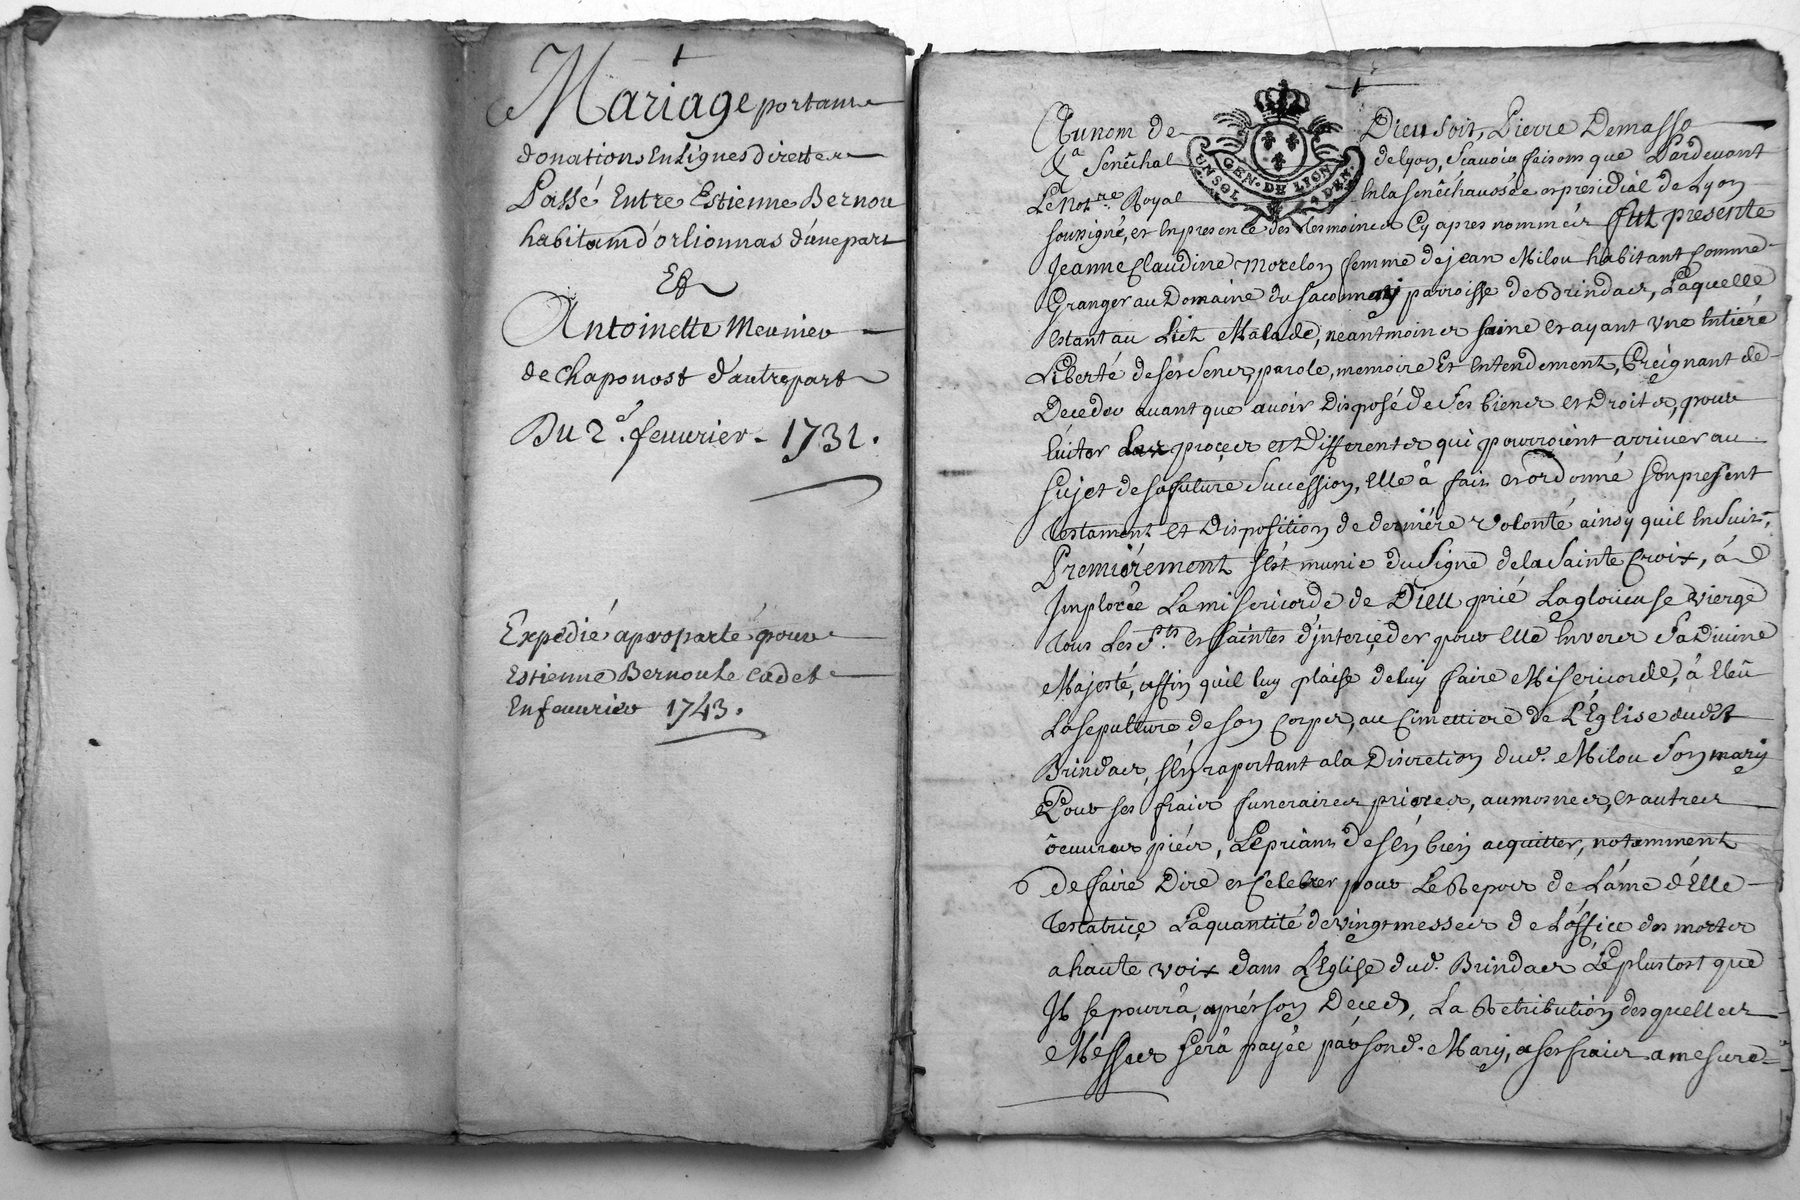 Mariage portant
donations En Lignes directes
Passé Entre Estienne Bernou
habitant d'orlionnas d'une part
Et
Antoinette Meunier
de Chaponost d'autre part
Du 2e. feuurier - 1731.
Expedié aproparté pour
Estienne Bernou le cadet
En feuurier 1743.
Au nom de Dieu soit, Pierre Demasso
Senêchal de lyon, sçauoir faisons que Pardeuant
Le Notre Royal En la Senêchaussée et presidial de Lyon
GEN. DE LION
UN SOL 4 DEN.
soussigné, et En presence des tesmoins Cy apres nommés fut presente
Jeanne Claudine Morelon femme de jean Milou habitant Comme
Granger au Domaine du parroisse de Brindas, Laquelle
Estant au Lict Malade, neantmoins saine et ayant Une Entiere
Liberté de ses Sens, parole, memoire Et Entendement, Creignant de
Deceder auant que auoir Disposé de Ses biens et Droits, pour
Euiter proces et Differents qui pourroient arriuer au
Sujet de sa future Succession, Elle à fait et ordonné son present
testament Et Disposition de derniere Volonté ainsy quil Ensuit,
Premiérement s'est munie du Signe de la Sainte Croix, à
Implorée La misericorde de Dieu prié La glorieuse vierge
tous Les Sts. et saintes d'interçeder pour Elle Enuers Sa Diuine
Majesté, affin quil luy plaise de luy faire Misericorde, à Eleu
La sepulture de son Corps, au Cimettiere de L'Église dudit
Brindas, s'En raportant a la Discretion dud. Milou Son mary
Pour ses frais funeraires prieres, aumosnes, et autres
oeuures pies, Le priant de s'En bien acquitter, notamment
de faire Dire et Celebrer pour Le Repos de L'ame d'Elle
testatriçe La quantité de vingt messes de L'office des morts
a haute voix dans L'Eglise dud. Brindas Le plus tost que
Il se pourrà, après son Deçed, La Retribution desquelles
Messes serà payée par sond. Mary, a ses frais a mesure